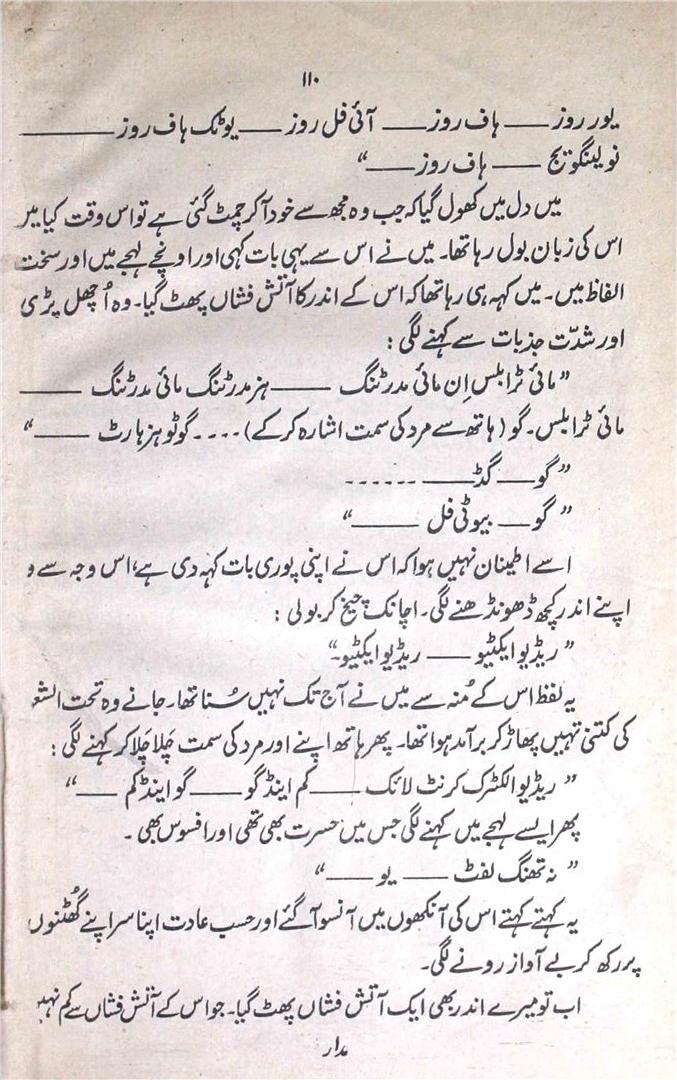 ۱۱۰
یور روز ـــــ ہاف روز ـــــ آئی فل روز ـــــ یوٹک ہاف روز ـــــ
نو لینگویج ـــــ ہاف روز ـــــ “
میں دل میں کھول گیا کہ جب وہ مجھ سے خود آ کر چمٹ گئی ہے تو اس وقت کیا میر
اس کی زبان بول رہا تھا۔ میں نے اس سے یہی بات کہی اور اونچے لہجے میں اور سخت
الفاظ میں۔ میں کہہ ہی رہا تھا کہ اس کے اندر کا آتش فشاں پھٹ گیا۔ وہ اُچھل پڑی
اور شدّت جذبات سے کہنے لگی :
” مائی ٹرابلس اِن مائی مدر ٹنگ ـــــ ہز مدر ٹنگ مائی مدر ٹنگ ـــــ
مائی ٹرابلس۔ گو ( ہاتھ سے مرد کی سمت اشارہ کر کے ) . . . . گو ٹو ہز ہارٹ ـــــ “
” گو ـــــ گڈ ـــــ . . . . . .
” گو ـــــ بیوٹی فل ـــــ “
اسے اطمینان نہیں ہوا کہ اس نے اپنی پوری بات کہہ دی ہے، اس وجہ سے و
اپنے اندر کچھ ڈھونڈھنے لگی۔ اچانک چیخ کر بولی :
” ریڈیو ایکٹیو ـــــ ریڈیو ایکٹیو۔“
یہ لفظ اس کے مُنہ سے میں نے آج تک نہیں سُنا تھا۔ جانے وہ تحت الشع
کی کتنی تہیں پھاڑ کر برآمد ہوا تھا۔ پھر ہاتھ اپنے اور مرد کی سمت چَلا چَلا کر کہنے لگی :
” ریڈیو الکٹرک کرنٹ لائک ـــــ کم اینڈ گو ـــــ گو اینڈ کم ـــــ “
پھر ایسے لہجے میں کہنے لگی جس میں حسرت بھی تھی اور افسوس بھی ۔
” نہ تھنگ لفٹ ـــــ یو ـــــ “
یہ کہتے کہتے اس کی آنکھوں میں آنسو آ گئے اور حسب عادت اپنا سر اپنے گھُٹنوں
پر رکھ کر بے آواز رونے لگی۔
اب تو میرے اندر بھی ایک آتش فشاں پھٹ گیا۔ جو اس کے آتش فشاں سے کم نہیں
مدار